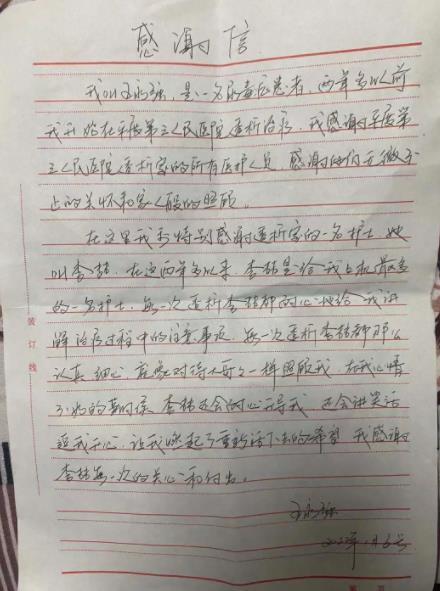 感谢信
我叫王永强,是一名尿毒症患者,两年多以前
我开始在平度第三人民医院透析治疗,我感谢平度第
三人民医院透析室的所有医护人员,感谢他们无微不
至的关怀和家人般的照顾。
在这里我要特别感谢透析室的一名护士,她
叫李喆,在这两年多以来,李喆是给我上机最多
的一名护士,每一次透析李喆都耐心地给我讲
解治疗过程中的注意事项,每一次透析李喆都那么
认真、细心,就像对待一样照顾我,在我心情
不好的时候,李喆还会耐心开导我,还会讲笑话
逗我开心,让我唤起了重新活下去的希望,我感谢
李喆每一次的关心和付出。
王永强
月6号
装订线